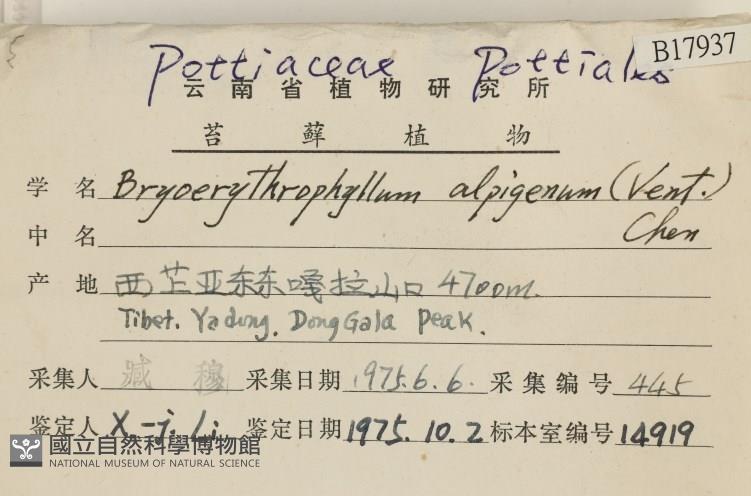 B17937
Pottiaceae Pottiales
云南省植物研究所
苔藓植物
学名 Bryoerythrophyllum alpigenum (Vent.)
Chen
中名
产地 西芷亚东东嘎拉山口 4700m.
Tibet. Yadong. Dong Gala Peak.
采集人 臧穆 采集日期 1975.6.6. 采集编号 445
鉴定人 X.-j. Li 鉴定日期 1975.10.2 标本室编号 14919
國立自然科學博物館
NATIONAL MUSEUM OF NATURAL SCIENCE